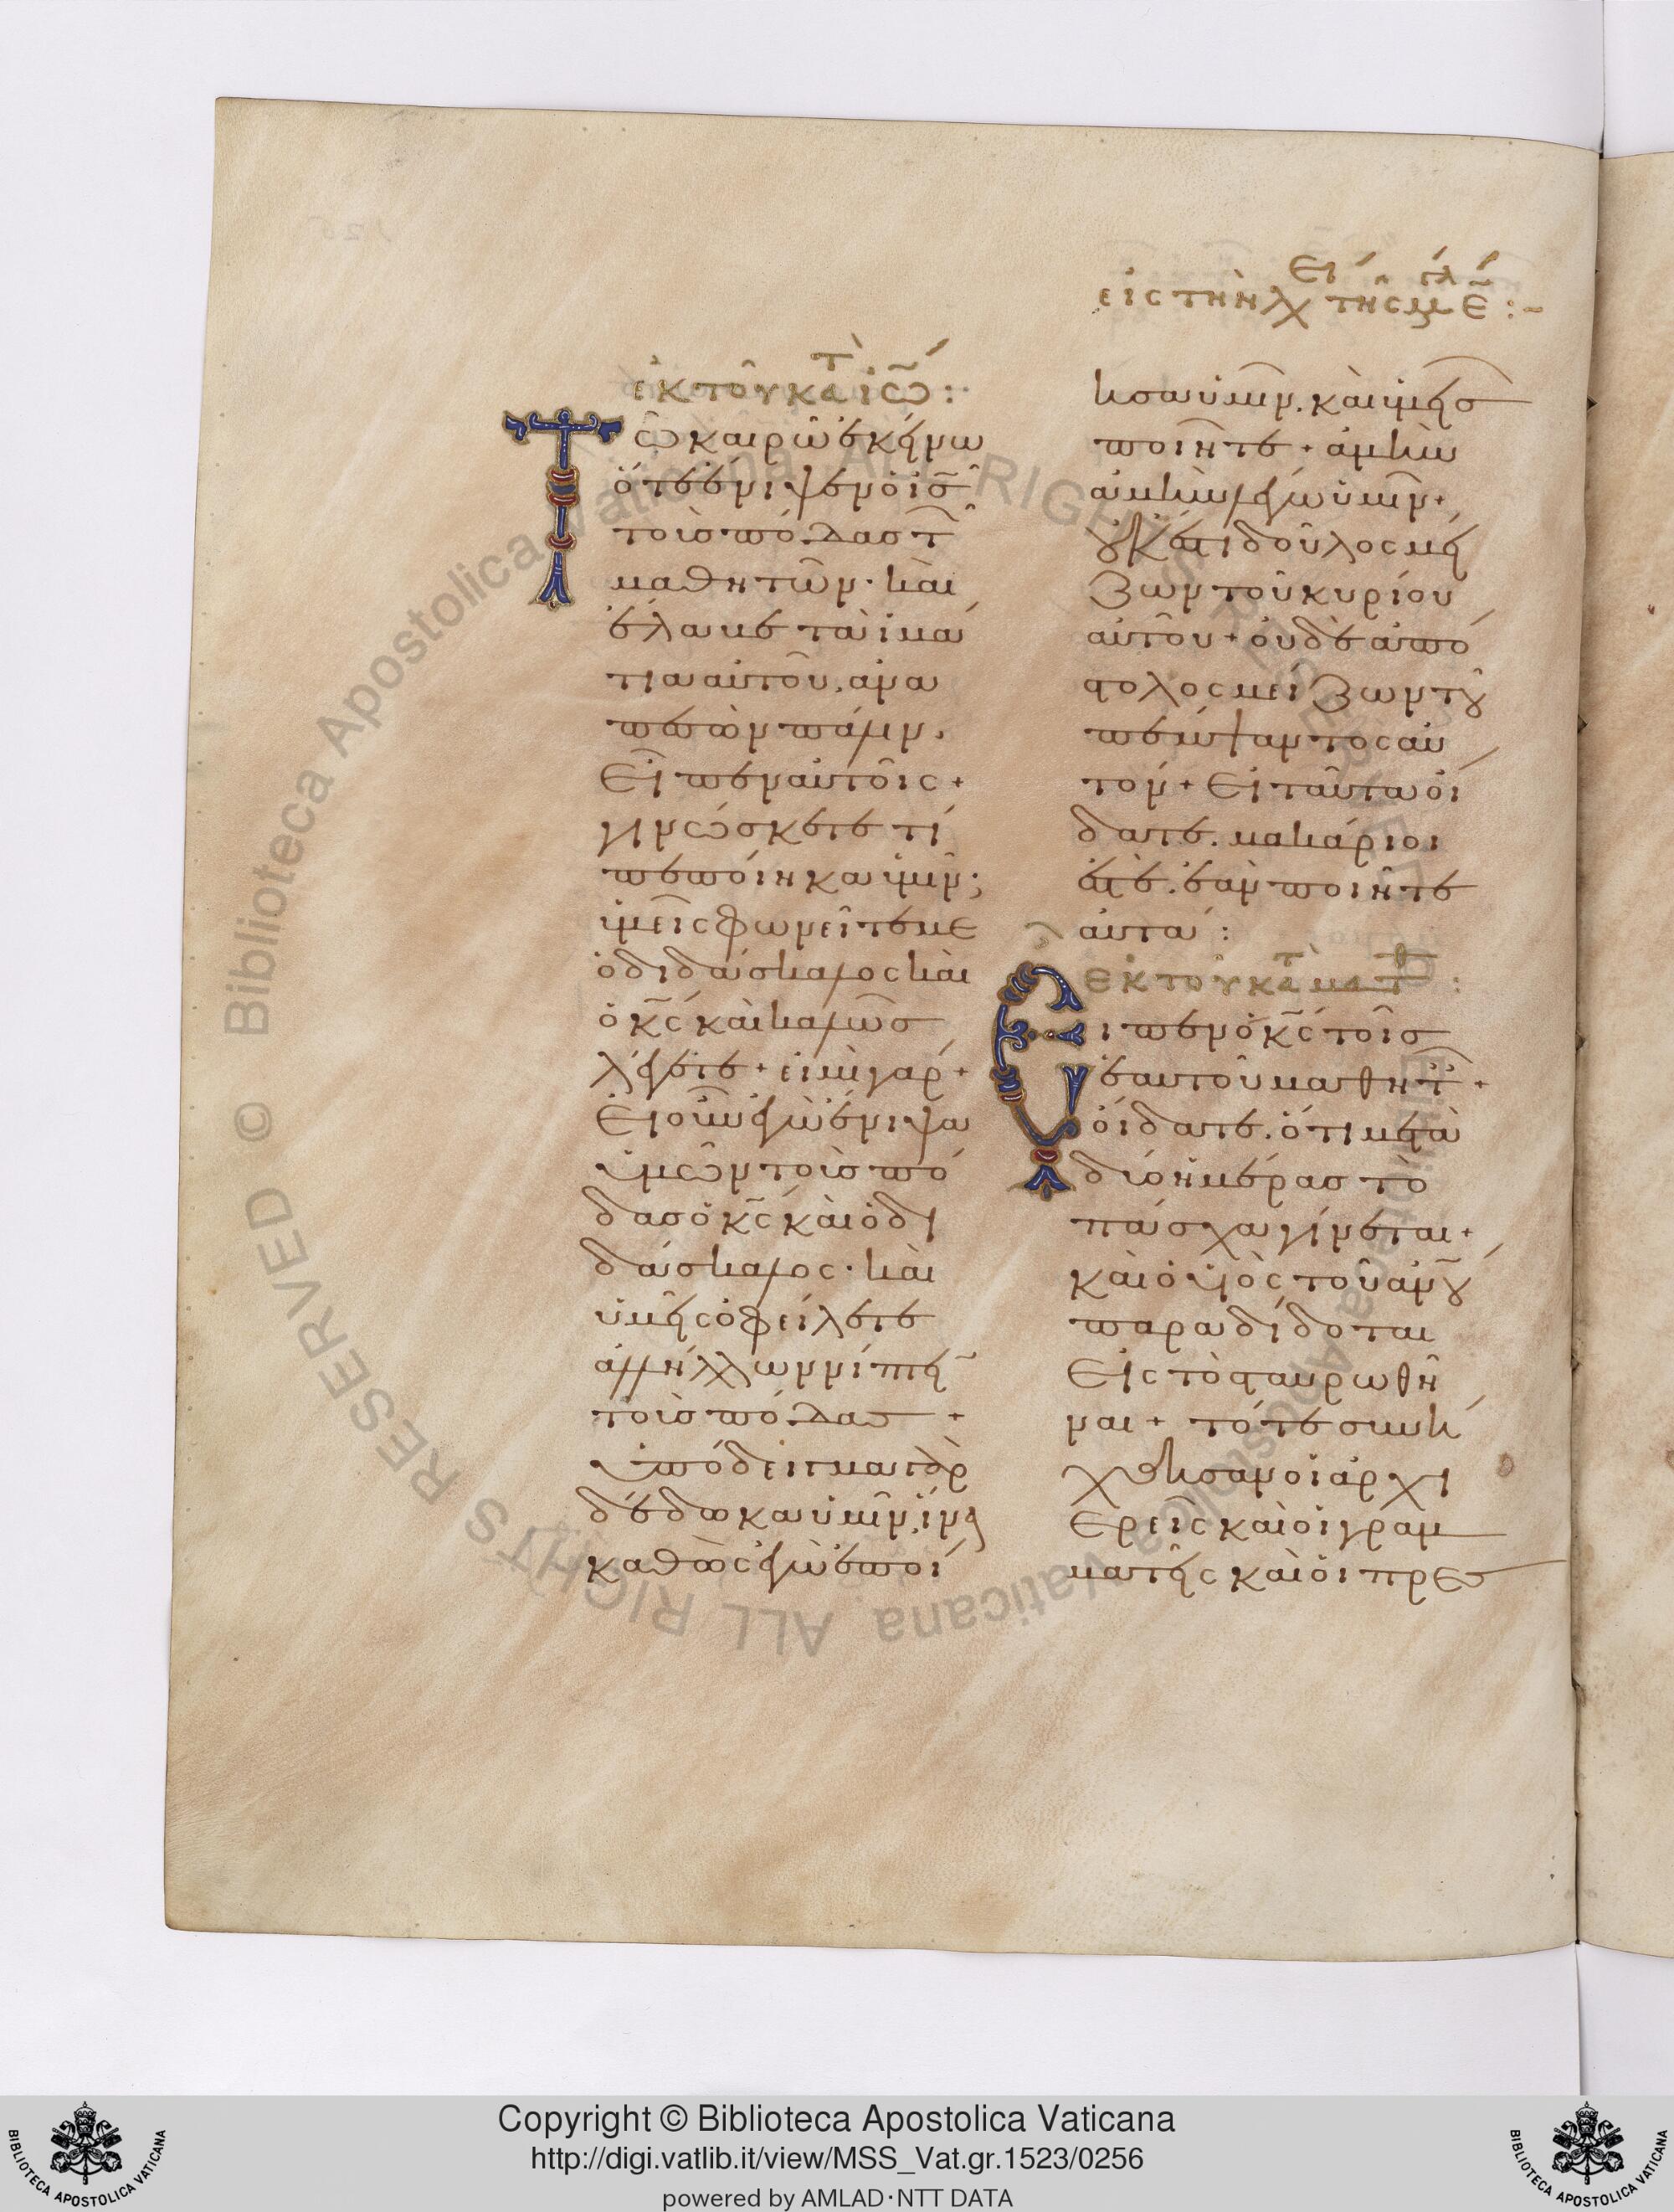 εἰς τὴν λχ τῆς μγ ε̅ :~
ἐκ τοῦ κατ ἰω :·
Τῶ καιρῶ ἐκείνω
ὅτε ἔνιψεν ὁ ις
τοὺς πόδας τ
μαθητῶν· καὶ
ἔλαβε τὰ ἱμά
τια αὐτοῦ, ἀνα
πεσὼν πάλιν.
Εἶπεν αὐτοῖς +
γινώσκετε τί
πεποίηκα ὑμῖν;
ὑμεῖς φωνεῖτέ με
ὁ διδάσκαλος καὶ
ὁ κς καὶ καλῶσ
λέγετε + εἰμὶ γάρ +
Εἰ οὖν ἐγὼ ἔνιψα
ὑμῶν τοὺς πό
δας ὁ κς καὶ ὁ δι
δάσκαλος· καὶ
ὑμεῖς ὀφείλετε
ἀλλήλων νίπτειν
τοὺς πόδας +
ὑπόδειγμα γὰρ
δέδωκα ὑμῖν, ἵνα
καθὼς ἐγὼ ἐποί
ησα ὑμῖν. καὶ ὑμεῖσ
ποιῆτε + ἀμὴν
ἀμὴν λέγω ὑμῖν +
οὐκ ἔστι δοῦλος μεί
ζων τοῦ κυρίου
αὐτοῦ + οὐδὲ ἀπό
στολος μείζων τοῦ
πέμψαντος αὐ
τόν + Εἰ ταῦτα οἴ
δατε. μακάριοι
ἐστέ. ἐὰν ποιῆτε
αὐτά :
ἐκ τοῦ κατ ματθ :
Εἶπεν ὁ κς τοῖσ
ἑαυτοῦ μαθητ +
οἴδατε. ὅτι μετὰ
δύο ἡμέρας τὸ
πάσχα γίνεται +
καὶ ὁ υἱὸς τοῦ ἀνου
παραδίδοται
Εἰς τὸ σταυρωθῆ
ναι + τότε συνή
χθησαν οἱ ἀρχι
Ερεῖς καὶ οἱ γραμ
ματεῖς καὶ οἱ πρεσ
Copyright © Biblioteca Apostolica Vaticana
http://digi.vatlib.it/view/MSS_Vat.gr.1523/0256
powered by AMLAD·NTT DATA
BIBLIOTECA APOSTOLICA VATICANA
BIBLIOTECA APOSTOLICA VATICANA
© Biblioteca Apostolica Vaticana ALL RIGHTS RESERVED